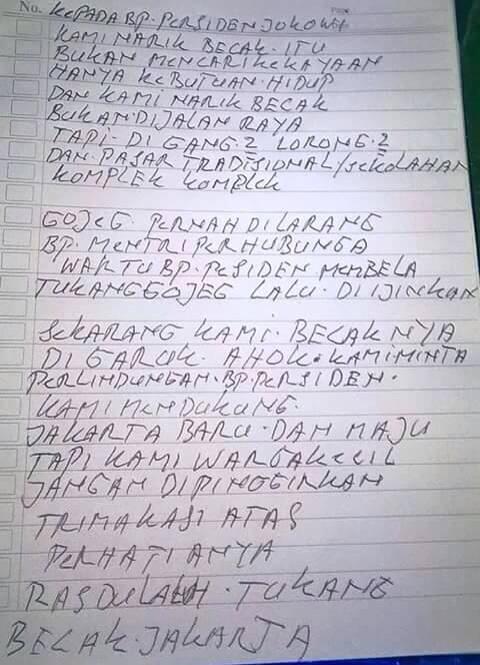 No.
KEPADA BP. PERSIDEN JOKOWI
KAMI NARIK BECAK. ITU
BUKAN MENCARI KEKAYAAN
HANYA KEBUTUAN. HIDUP
DAN KAMI NARIK BECAK
BUKAN. DIJALAN RAYA
TAPI. DI GANG.2 LORONG.2
DAN. PASAR TRADISIONAL/SEKOLAHAN
KOMPLEK KOMPLEK
GOJEG. PERNAH DILARANG
BP. MENTRI PERHUBUNGA
WAKTU BP. PESIDEN MEMBELA
TUKANG GOJEG LALU. DI IJINKAN
SEKARANG KAMI. BECAK NYA
DI GARUK. AHOK. KAMI MINTA
PERLINDUNGAN. BP. PERSIDEN.
KAMI MENDUKUNG.
JAKARTA BARU. DAN MAJU
TAPI KAMI WARGA KECIL
JANGAN DIPINGGIRKAN
TRIMAKASI ATAS
PERHATIANYA
RASDULAH. TUKANG
BECAK. JAKARTA